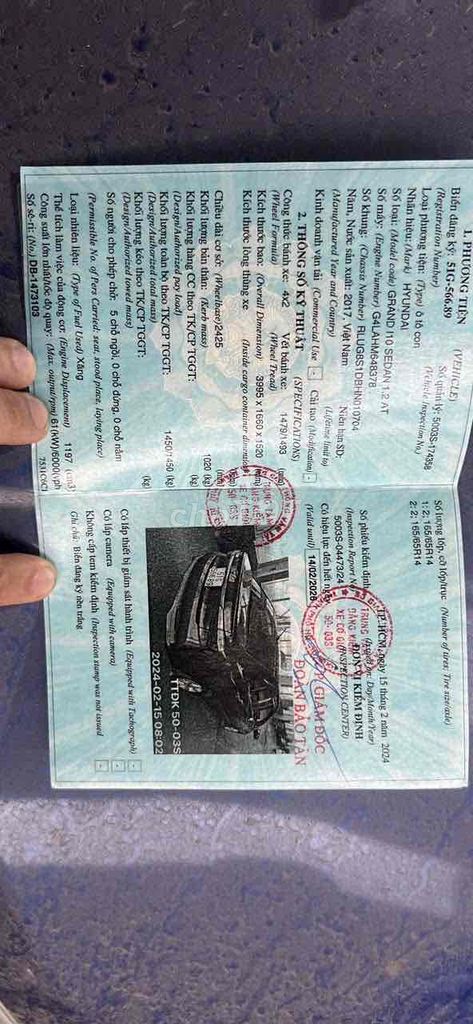 1. PHƯƠNG TIỆN (VEHICLE)
Biển đăng ký: 51G-566.89 Số quản lý: 5003S-174358
(Registration Number) (Vehicle Inspection No.)
Loại phương tiện: (Type) ô tô con
Nhãn hiệu: (Mark) HYUNDAI
Số loại: (Model code) GRAND I10 SEDAN 1.2 AT
Số máy: (Engine Number) G4LAHM648378
Số khung: (Chassis Number) RLUG8S1DBHN010704
Năm, Nước sản xuất: 2017, Việt Nam Niên hạn SD:
(Manufactured Year and Country) (Lifetime limit to)
Kinh doanh vận tải: (Commercial Use) - Cải tạo: (Modification) -
2. THÔNG SỐ KỸ THUẬT (SPECIFICATIONS)
Công thức bánh xe: 4x2 Vết bánh xe: 1479/1493 (mm)
(Wheel Formula) (Wheel Tread)
Kích thước bao: (Overall Dimension) 3995 x 1660 x 1520 (mm)
Kích thước lòng thùng xe (Inside cargo container dimension) (mm)
Chiều dài cơ sở: (Wheelbase) 2425 (mm)
Khối lượng bản thân: (Kerb mass) 1020 (kg)
Khối lượng hàng CC theo TK/CP TGGT: (kg)
(Design/Authorized pay load)
Khối lượng toàn bộ theo TK/CP TGGT: 1450/1450 (kg)
(Design/Authorized total mass)
Khối lượng kéo theo TK/CP TGGT: (kg)
(Design/Authorized towed mass)
Số người cho phép chở: 5 chỗ ngồi, 0 chỗ đứng, 0 chỗ nằm
(Permissible No. of Pers Carried: seat, stood place, laying place)
Loại nhiên liệu: (Type of Fuel Used) Xăng
Thể tích làm việc của động cơ: (Engine Displacement) 1197 (cm3)
Công suất lớn nhất/tốc độ quay: (Max. output/rpm) 61(kW)/6000vph
Số sê-ri: (No.) DB-1473103
Số lượng lốp, cỡ lốp/trục (Number of tires; Tire size/axle)
1: 2; 165/65R14
2: 2; 165/65R14
Số phiếu kiểm định
(Inspection Report N
5003S-04473/24
Có hiệu lực đến hết ngày
(Valid until) 14/02/2026
TP. HCM, ngày 15 tháng 2 năm 2024
(Day/Month/Year)
ĐƠN VỊ KIỂM ĐỊNH
(INSPECTION CENTER)
GIÁM ĐỐC
ĐOÀN BẢO TÂN
TRUNG TÂM
ĐĂNG KIỂM
XE CƠ GIỚI
50-03S
2024-02-15 08:02
TTDK 50-03S
Có lắp thiết bị giám sát hành trình (Equipped with Tachograph) -
Có lắp camera (Equipped with camera) -
Không cấp tem kiểm định (Inspection stamp was not issued) -
Ghi chú: Biển đăng ký nền trắng